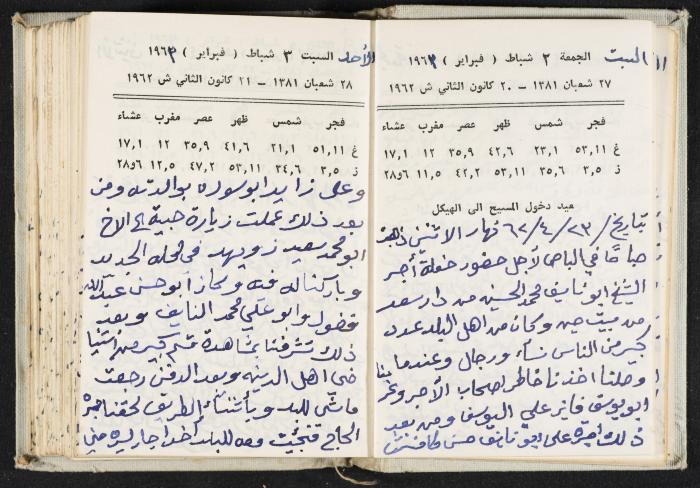 ١١ السبت الجمعة ٢ شباط ( فبراير ) ١٩٦٣
٢٧ شعبان ١٣٨١ – ٢٠ كانون الثاني ش ١٩٦٢
فجر شمس ظهر عصر مغرب عشاء
غ ٥٣,١١ ٢٣,١ ٤٢,٦ ٣٥,٩ ١٢ ١٧,١
ز ٣,٥ ٣٥,٦ ٥٣,١١ ٤٢,٢ ١١,٥ ٢٨و٦
عيد دخول المسيح الى الهيكل
بتاريخ / ٢٣ / ٤ / ٦٢ نهار الاثنين ذهبت
صباحًا في الباص لأجل حضور حفلة أجر
الشيخ ابو نايف محمد الحسين من دار سعد
من بيت جن وكان من اهل البلد عدد
كبير من الناس نساء ورجال وعندما
وصلنا اخذنا خاطر اصحاب الأجر
ابو يوسف فايز علي اليوسف ومن بعد
ذلك علي نايف حسن
الأحد السبت ٣ شباط ( فبراير ) ١٩٦٣
٢٨ شعبان ١٣٨١ – ٢١ كانون الثاني ش ١٩٦٢
فجر شمس ظهر عصر مغرب عشاء
غ ٥١,١١ ٢١,١ ٤١,٦ ٣٥,٩ ١٢ ١٧,١
ز ٣,٥ ٣٤,٦ ٥٣,١١ ٤٧,٢ ١٢,٥ ٢٨و٦
وعلى زايد ابو سوده بوالدته ومن
بعد ذلك عملت زيارة حبية الى الاخ
ابو محمد سعيد زويهد في محله الجديد
وباركنا له فيه وكان ابو حسن عبدالله
فضول وابو علي محمد النايف وبعد
ذلك تشرفنا بمشاهدة قسم كبير من
اهل الدينه وبعد الدفن رجعت
ماشي للبلد وبأثناء الطريق لحقنا
الحاج وصه للبلد